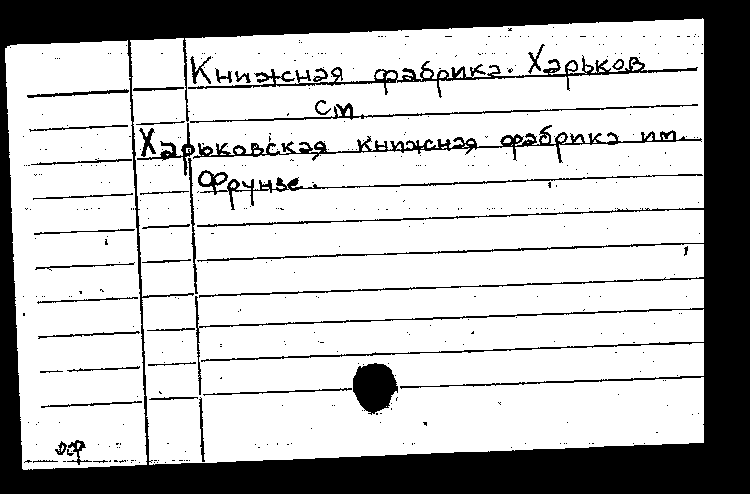 Книжная фабрика. Харьков
см.
Харьковская книжная фабрика им.
Фрунзе.